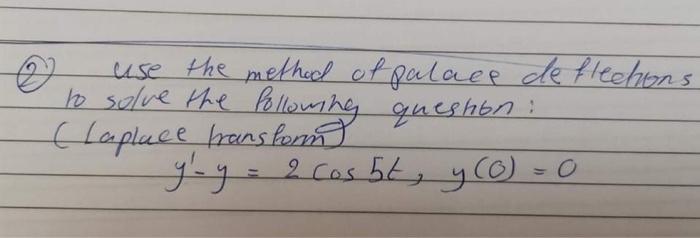 ② use the method of palace deflections
to solve the following question :
( Laplace transform)
y' - y = 2 cos 5t, y(0) = 0